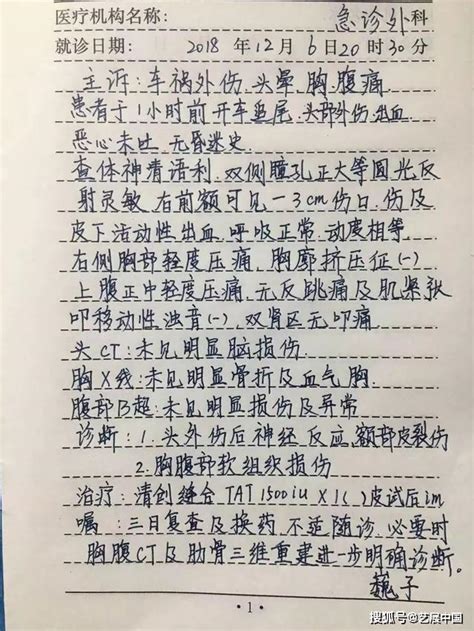 医疗机构名称: 急诊外科
就诊日期: 2018年12月6日20时30分
主诉:车祸外伤,头晕,胸,腹痛
患者于1小时前开车追尾,头部外伤,出血
恶心未吐,无昏迷史
查体神清语利,双侧瞳孔正大等圆光反
射灵敏,右前额可见一3cm伤口,伤及
皮下活动性出血,呼吸正常,动度相等,
右侧胸部轻度压痛,胸廓挤压征(-)
上腹正中轻度压痛,无反跳痛及肌紧张
叩移动性浊音(-),双肾区无叩痛
头CT:未见明显脑损伤
胸X线:未见明显骨折及血气胸
腹部B超:未见明显损伤及异常
诊断:1.头外伤后神经反应,额部皮裂伤
2.胸腹部软组织损伤
治疗:清创缝合 TAT 1500iu X1( )皮试后im
嘱:三日复查及换药,不适随诊,必要时
胸腹CT及肋骨三维重建进一步明确诊断。
魏子
·1·
搜狐号@艺展中国